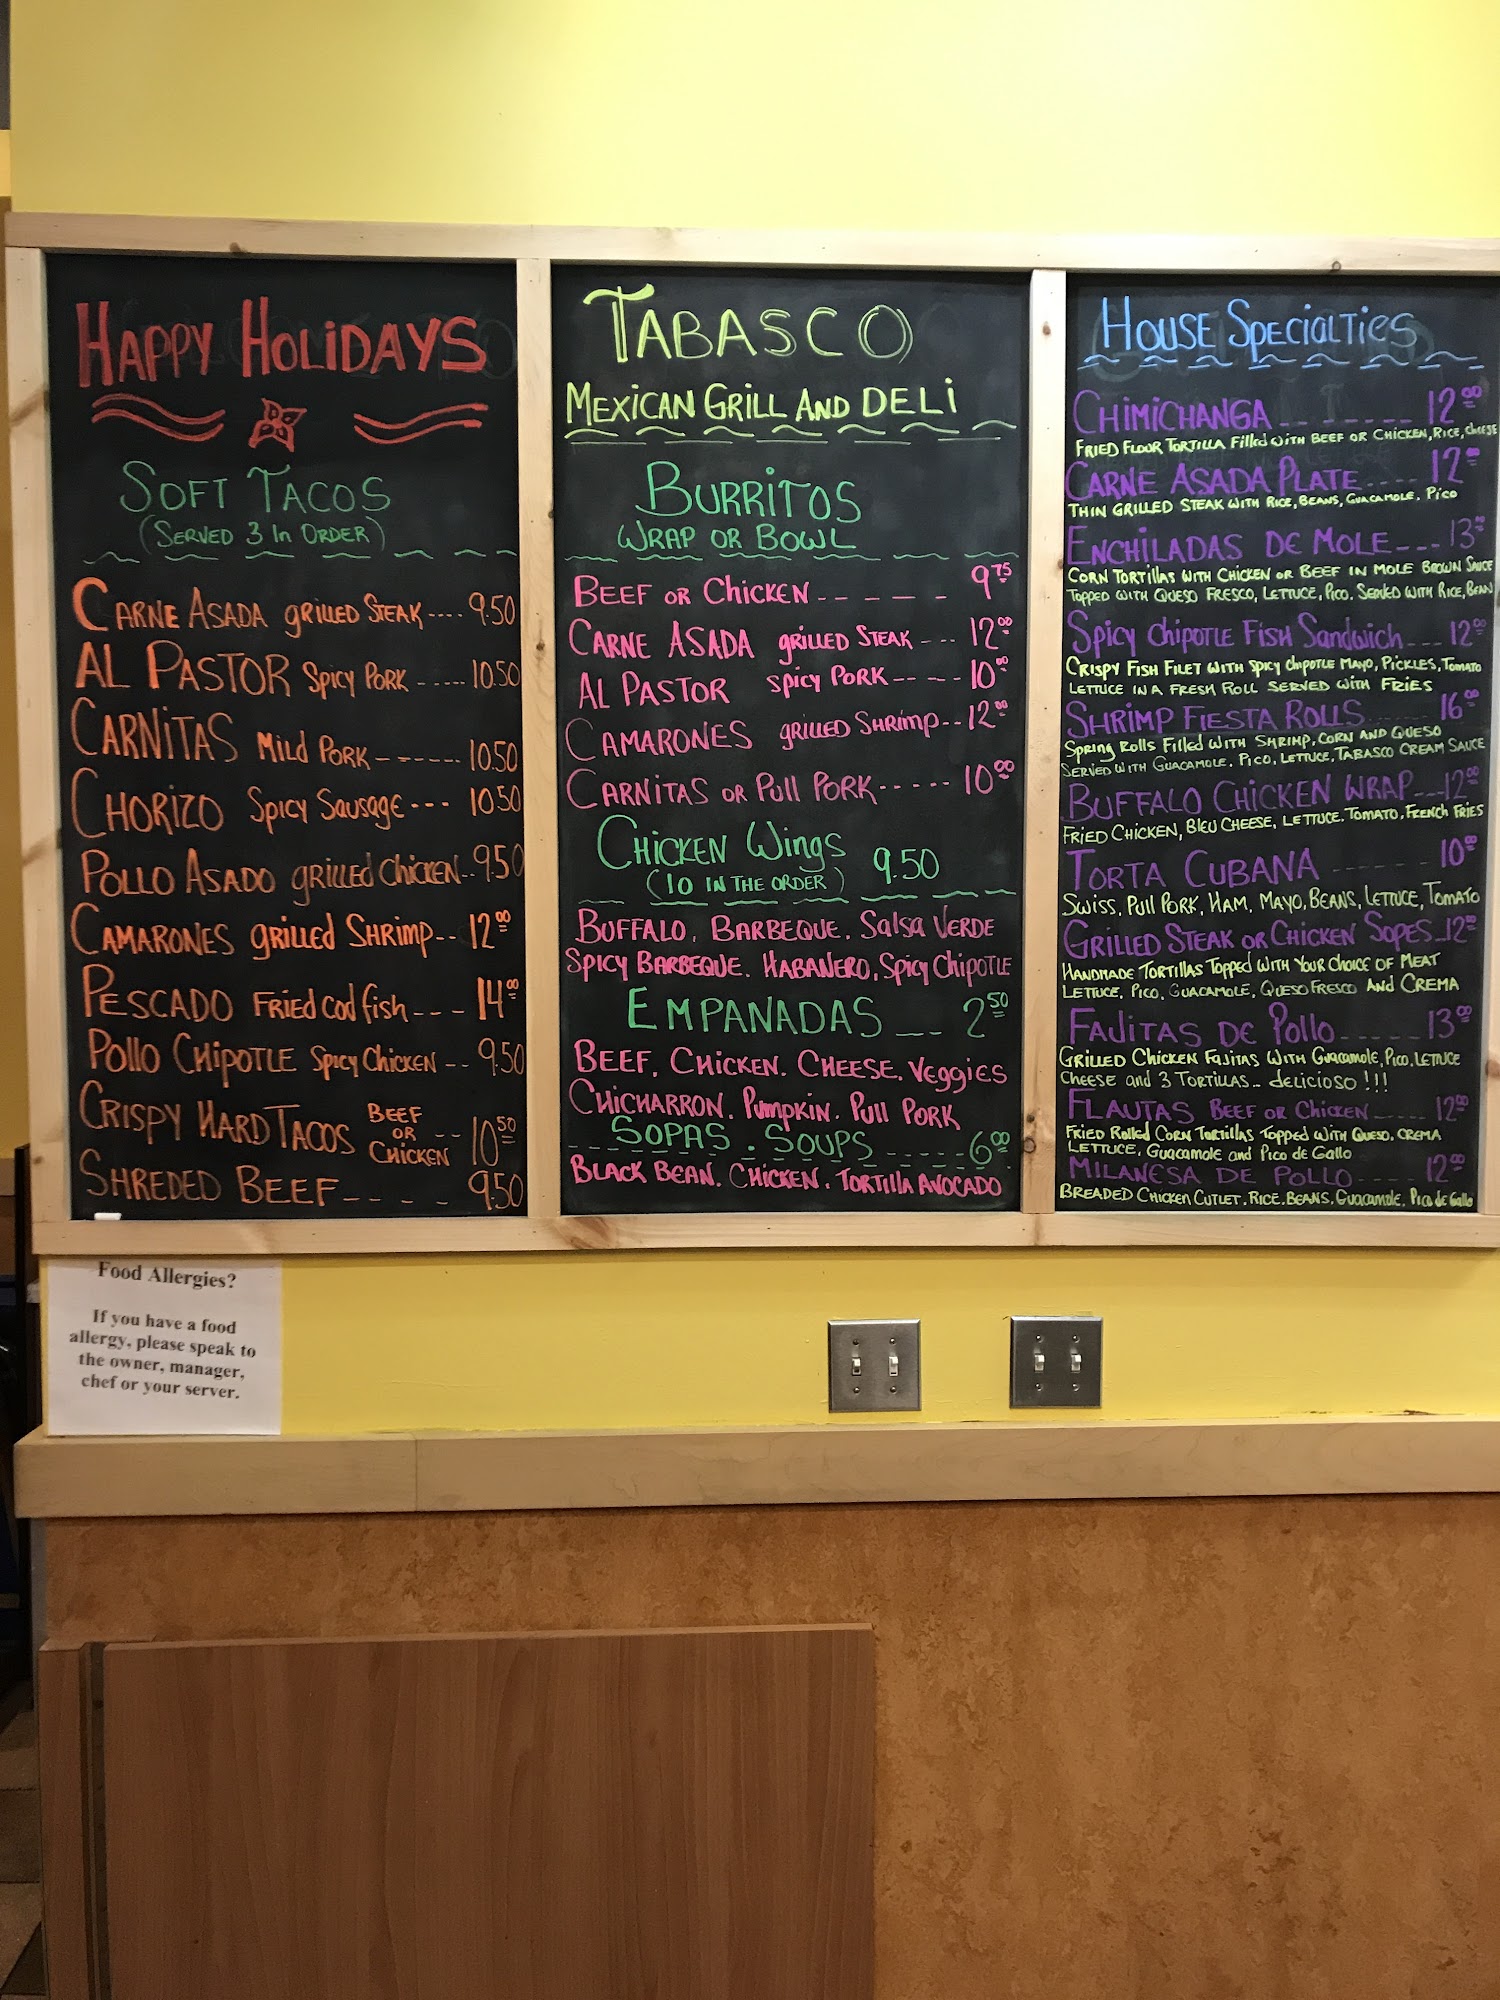 HAPPY HOLIDAYS
SOFT TACOS
(SERVED 3 In ORDER)
CARNE ASADA grilled STEAK .... 9.50
AL PASTOR Spicy PORK ..... 10.50
CARNITAS Mild PORK ------ 10.50
CHORIZO Spicy Sausage --- 10.50
POLLO ASADO grilled Chicken .. 9.50
CAMARONES grilled SHRimp -- 12.00
PESCADO FRied cod fish --- 14.00
Pollo CHIPOTLE Spicy Chicken -- 9.50
CRISPY HARD TACOS BEEF OR CHICKEN -- 10.50
SHREDED BEEF ---- 9.50
TABASCO
MEXICAN GRILL AND DELI
BURRITOS
WRAP OR BOWL
BEEF OR CHICKEN ----- 9.75
CARNE ASADA grilled STEAK --- 12.00
AL PASTOR spicy PORK ---- 10.00
CAMARONES grilled SHRimp -- 12.00
CARNITAS OR Pull PORK ----- 10.00
CHICKEN Wings 9.50
(10 IN THE ORDER)
BUFFALO, BARBEQUE. Salsa VERDE
SpicY BARBEQUE. HABANERO, Spicy Chipotle
EMPANADAS -- 2.50
BEEF. CHICKEN. CHEESE. Veggies
CHICHARRON. Pumpkin. Pull PORK
SOPAS . SOUPS ----- 6.00
BLACK BEAN. CHICKEN. TORTILLA AVOCADO
HOUSE SPECIALTIES
CHIMICHANGA ------ 12.00
FRIED FLOUR TORTILLA Filled WITH BEEF OR CHICKEN, RICE, CHEESE
CARNE ASADA PLATE ---- 12.00
THIN GRILLED STEAK WITH RICE, BEANS, GUACAMOLE. PICO
ENCHILADAS DE MOLE --- 13.00
CORN TORTILLAS WITH CHICKEN OR BEEF IN MOLE BROWN SAUCE
TOPPED WITH QUESO FRESCO, LETTUCE, PICO. SERVED WITH RICE, BEAN
Spicy CHIPOTLE FISH Sandwich --- 12.00
CRISPY FISH FILET WITH SPICY CHIPOTLE MAYO, PICKLES, TOMATO
LETTUCE IN A FRESH ROLL SERVED WITH FRIES
SHRIMP FIESTA ROLLS ------ 16.00
SPRING ROLLS FILLED WITH SHRIMP, CORN AND QUESO
SERVED WITH GUACAMOLE. PICO, LETTUCE, TABASCO CREAM SAUCE
BUFFALO CHICKEN WRAP -- 12.00
FRIED CHICKEN, BLEU CHEESE, LETTUCE. TOMATO, FRENCH FRIES
TORTA CUBANA ------ 10.00
SWISS, PULL PORK, HAM, MAYO, BEANS, LETTUCE, TOMATO
GRILLED STEAK OR CHICKEN SOPES - 12.00
HANDMADE TORTILLAS TOPPED WITH YOUR CHOICE OF MEAT
LETTUCE, PICO, GUACAMOLE, QUESO FRESCO AND CREMA
FAJITAS DE Pollo ------ 13.00
GRILLED CHICKEN FAJITAS WITH GUACAMOLE, PICO, LETTUCE
CHEESE and 3 TORTILLAS .. delicioso !!!
FLAUTAS BEEF OR CHICKEN ----- 12.00
FRIED Rolled CORN TORTILLAS TOPPED WITH QUESO, CREMA
LETTUCE, GUACAMOLE and PICO de GALLO
MILANESA DE POLLO ------ 12.00
BREADED CHICKEN CUTLET. RICE. BEANS. GUACAMOLE, PICO de Gallo
Food Allergies?
If you have a food
allergy, please speak to
the owner, manager,
chef or your server.